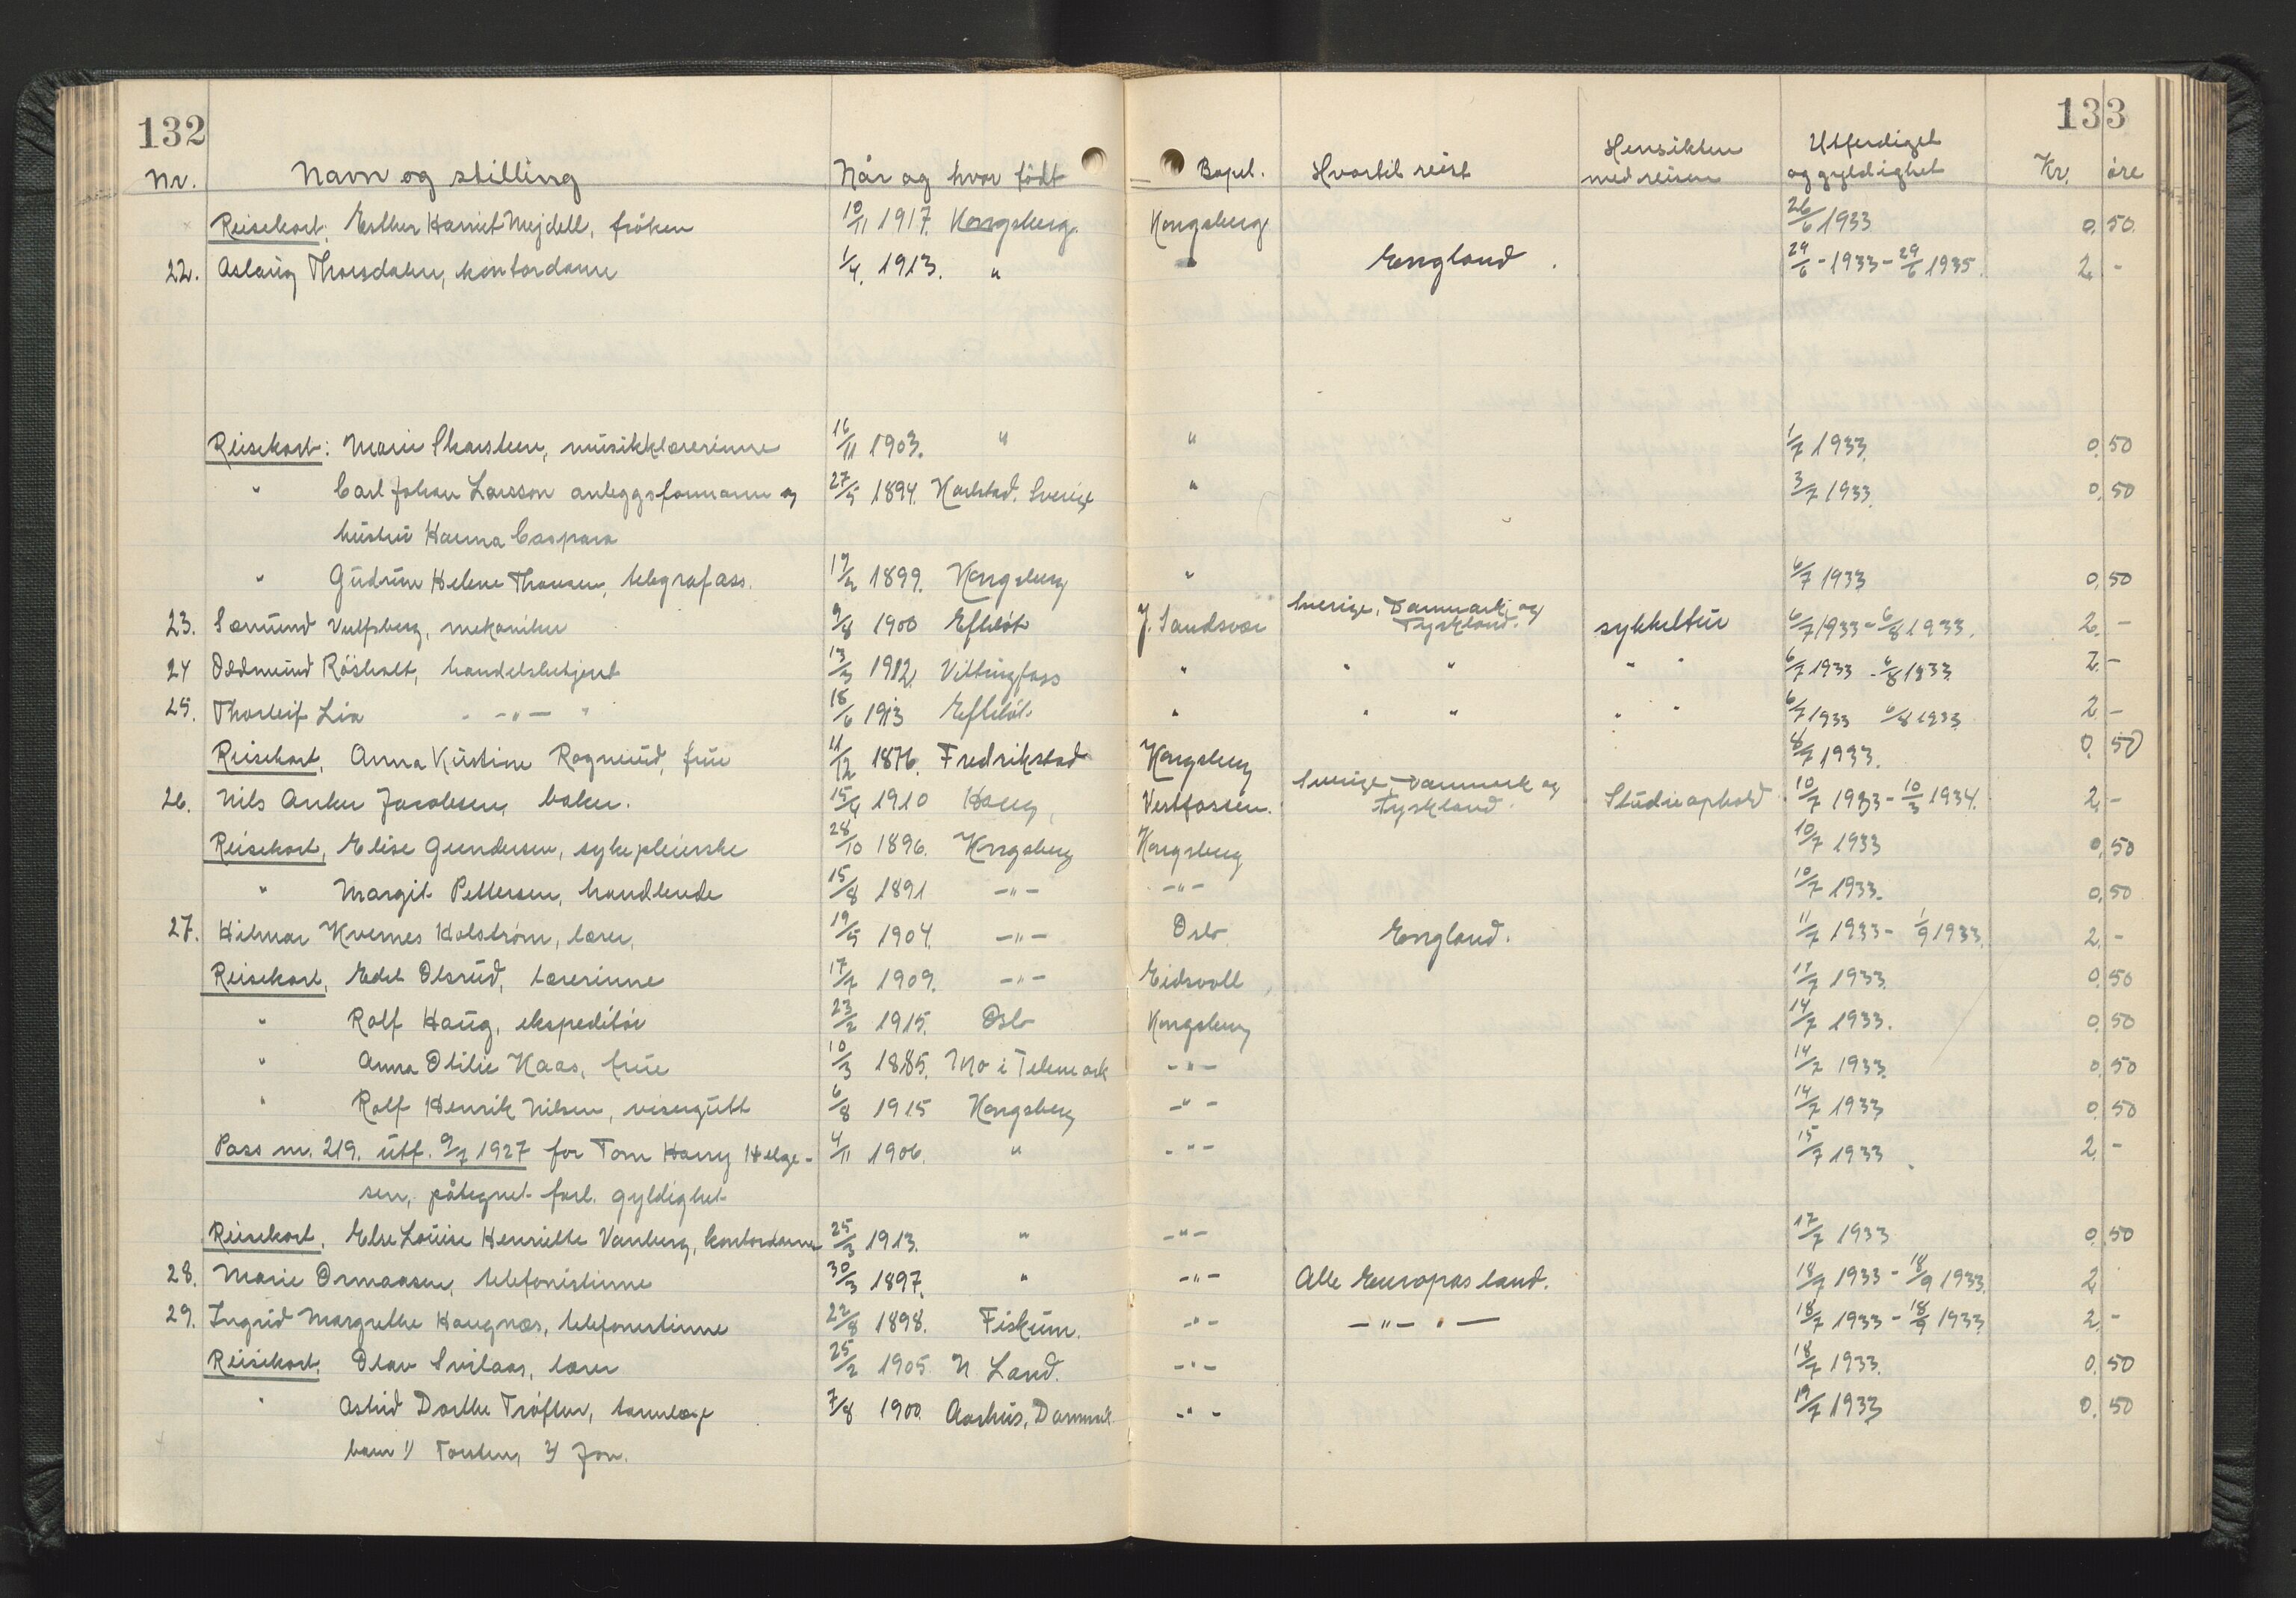 132
133
Nr. Navn og stilling Når og hvor født Bopel. Hvortil reist Hensikten med reisen Utferdiget og gyldighet Kr. øre
Reisekort: Esther Harriet Mejdell, frøken 10/11 1917. Kongsberg. Kongsberg 26/6 1933 0. 50.
22. Aslaug Thorsdalen, kontordame 1/4. 1913. " " England. 29/6 - 1933 - 29/6 1935. 2. -
Reisekort: Marie Skarsteen, musikklærerinne 16/11 1903. " " 1/7 1933. 0. 50
" Carl Johan Larsson anleggsformann og 27/5 1894. Karlstad. Sverige " 3/7 1933. 0. 50
hustru Hanna Caspara
" Gudrun Helene Thoresen, telegrafass. 19/2 1899. Kongsberg " 6/7 1933 0. 50
23. Sæmund Vulfsberg, mekaniker 9/8 1900 Efteløt J. Sandsvær Sverige, Danmark og Tyskland. sykkeltur 6/7 1933 - 6/8 1933. 2. -
24 Oddmund Röisholt, handelsbetjent 13/3 1912. Vittingfoss " " " " " 6/7 1933 - 6/8 1933. 2. -
25. Thorleif Lia - -"- " 18/6 1913 Efteløt " " " " " 6/7 1933 6/8 1933 2. -
Reisekort, Anna Kirstine Rognerud, frue 11/12 1876. Fredrikstad Kongsberg 8/7 1933. 0. 50
26. Nils Anker Jacobsen, baker. 15/4 1910 Haug, Vestfossen. Sverige, Danmark og Tyskland. Studieophold 10/7 1933 - 10/3 1934. 2. -
Reisekort, Elise Gundersen, sykepleierske 28/10 1896. Kongsberg Kongsberg 10/7 1933 0. 50
" Margit Pettersen, handlende 15/8 1891 -"- -"- 10/7 1933. 0. 50
27. Hilmar Kvernes Holstrøm, lærer, 19/5 1904. -"- Oslo England. 11/7 1933 - 1/9 1933. 2. -
Reisekort, Edel Olsrud, lærerinne 17/7 1909. -"- Eidsvoll 11/7 1933. 0. 50
" Rolf Haug, ekspeditør 23/2 1915. Oslo Kongsberg 14/7 1933. 0. 50
" Anna Otilie Kaas, frue 10/3 1885. Mo i Telemark -"- 14/7 1933. 0. 50
" Rolf Henrik Nilsen, visergutt 6/8 1915 Kongsberg -"- 14/7 1933 0. 50
Pass nr. 219. utf. 9/7 1927 for Tom Harry Helge- 4/11 1906. " -"- 15/7 1933. 2. -
sen, påtegnet forl. gyldighet
Reisekort, Else Louise Henriette Vanberg, kontordame 25/3 1913. " -"- 17/7 1933 0. 50
28. Marie Ormaasen, telefonistinne 30/3 1897. " -"- Alle Europas land. 18/7 1933 - 18/9 1933. 2
29. Ingrid Margrethe Haugnæs, telefonistinne 22/8 1898. Fiskum. -"- -"- " - 18/7 1933 - 18/9 1933 2. -
Reisekort, Olav Svilaas, lærer 25/2 1905 N. Land. -"- 18/7 1933. 0. 50
" Astrid Dorthe Trøften, tannlæge 7/8 1900. Aarhus, Danmark -"- 19/7 1933 0. 50
barn 1) Torsten, 2) Jon.